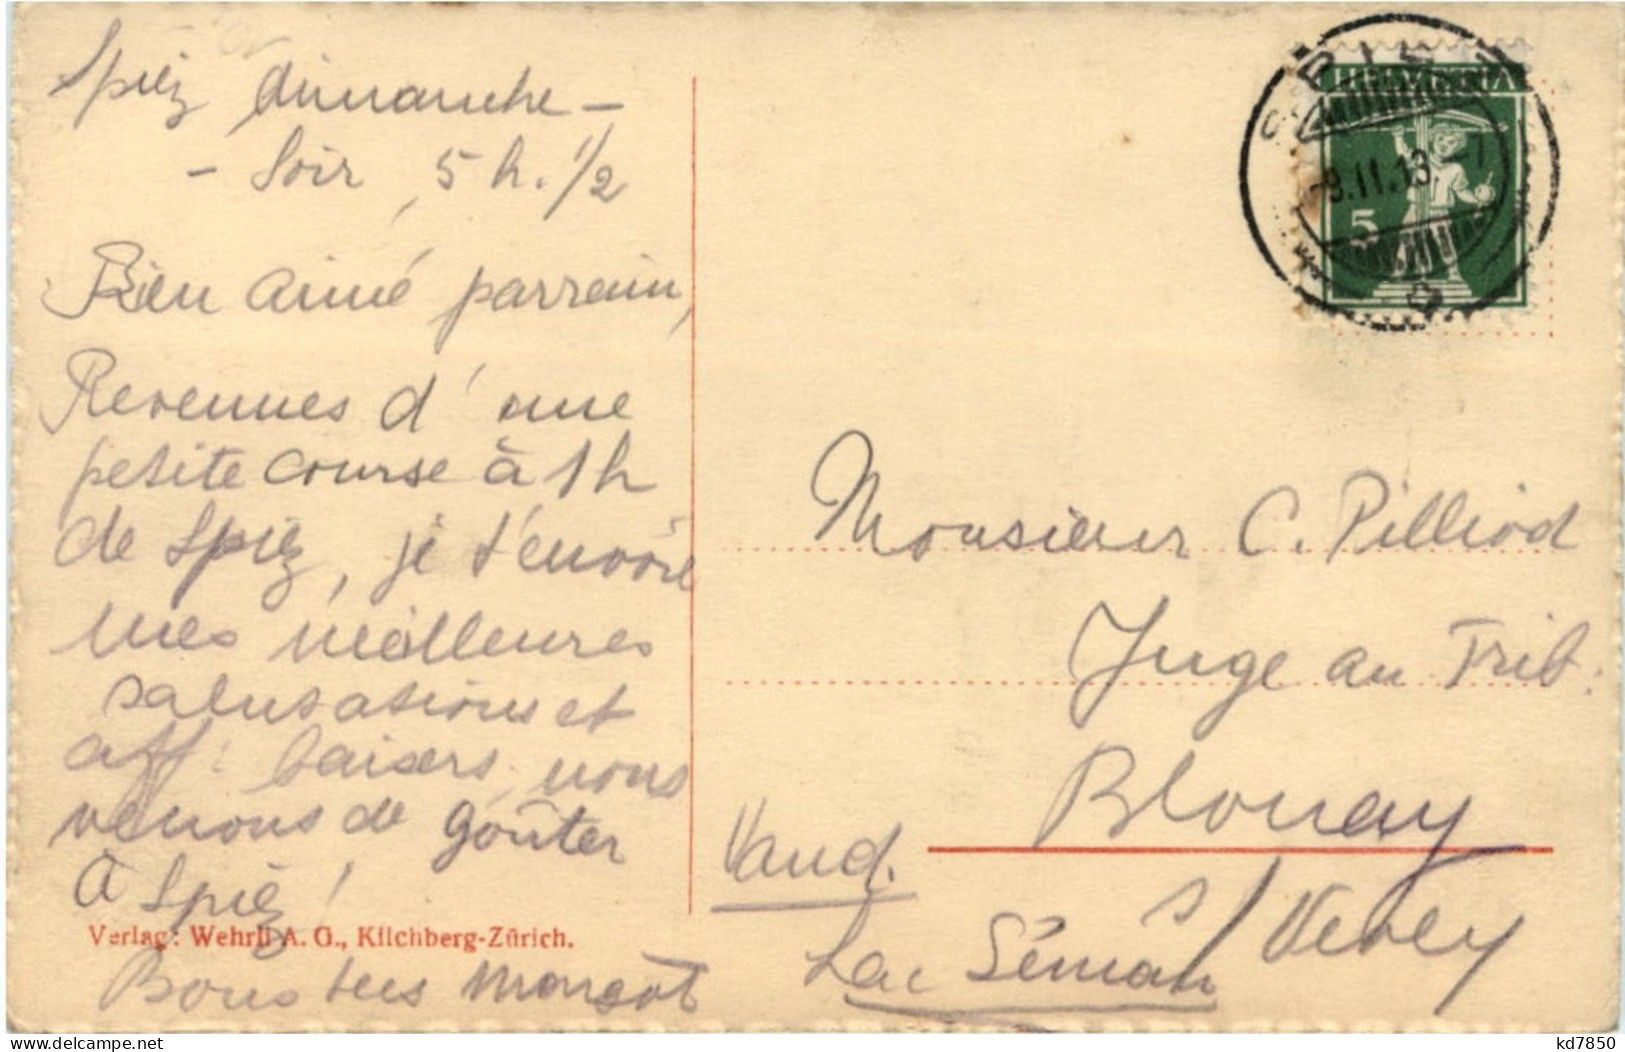 Spiez dimanche -
- Soir, 5 h. 1/2
Bien aimé parrain,
Revenues d'une
petite course à 1h
de Spiez, je t'envoie
mes meilleures
salutations et
aff: baisers, nous
venons de goûter
à Spiez!
Verlag: Wehrli A. G., Kilchberg-Zürich.
Bons
Margot
SPIEZ
-9.II.13.-7
HELVETIA
5
Monsieur C. Pilliod
Juge au Trib.
Blonay
s/ Vevey
Vaud.
Lac Léman
kd7850